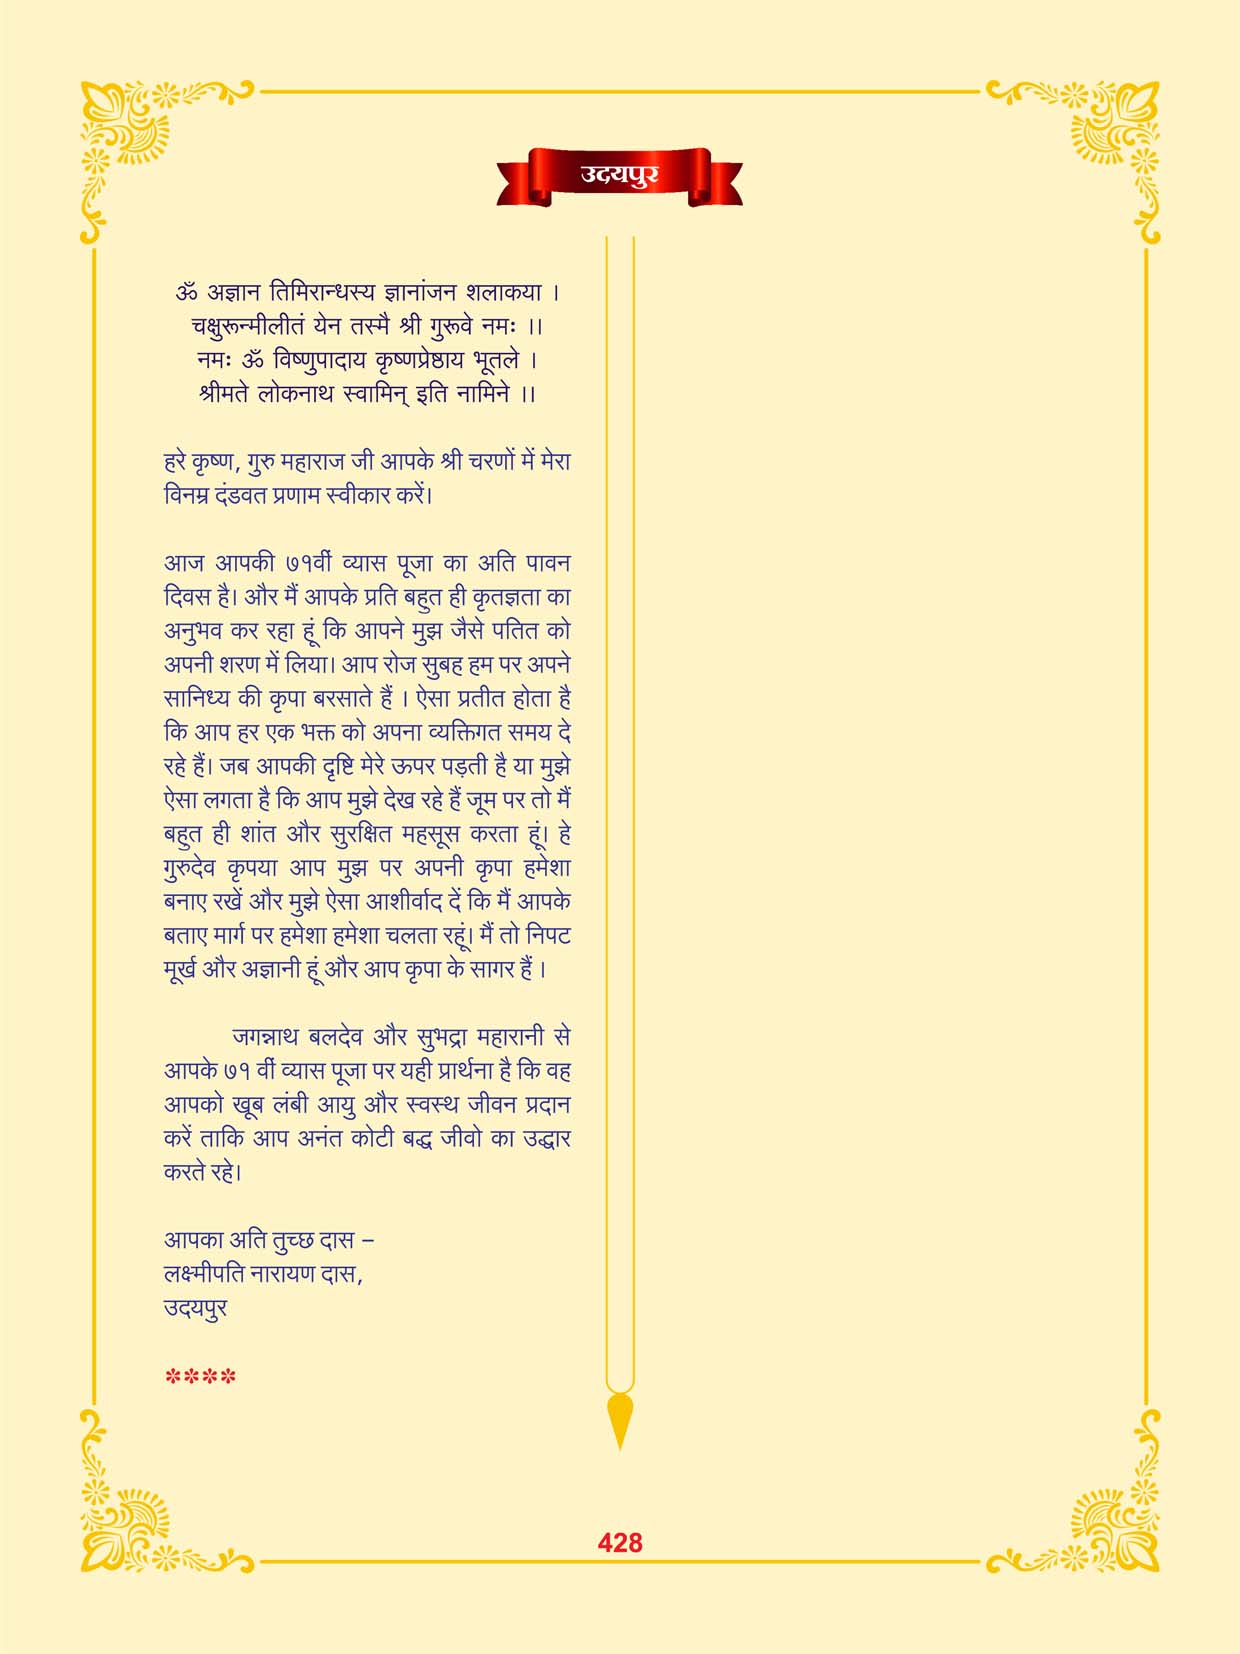 उदयपुर
ॐ अज्ञान तिमिरान्धस्य ज्ञानांजन शलाकया ।
चक्षुरून्मीलीतं येन तस्मै श्री गुरूवे नमः ।।
नमः ॐ विष्णुपादाय कृष्णप्रेष्ठाय भूतले ।
श्रीमते लोकनाथ स्वामिन् इति नामिने ।।
हरे कृष्ण, गुरु महाराज जी आपके श्री चरणों में मेरा
विनम्र दंडवत प्रणाम स्वीकार करें।
आज आपकी ७१वीं व्यास पूजा का अति पावन
दिवस है। और मैं आपके प्रति बहुत ही कृतज्ञता का
अनुभव कर रहा हूं कि आपने मुझ जैसे पतित को
अपनी शरण में लिया। आप रोज सुबह हम पर अपने
सानिध्य की कृपा बरसाते हैं । ऐसा प्रतीत होता है
कि आप हर एक भक्त को अपना व्यक्तिगत समय दे
रहे हैं। जब आपकी दृष्टि मेरे ऊपर पड़ती है या मुझे
ऐसा लगता है कि आप मुझे देख रहे हैं जूम पर तो मैं
बहुत ही शांत और सुरक्षित महसूस करता हूं। हे
गुरुदेव कृपया आप मुझ पर अपनी कृपा हमेशा
बनाए रखें और मुझे ऐसा आशीर्वाद दें कि मैं आपके
बताए मार्ग पर हमेशा हमेशा चलता रहूं। मैं तो निपट
मूर्ख और अज्ञानी हूं और आप कृपा के सागर हैं ।
जगन्नाथ बलदेव और सुभद्रा महारानी से
आपके ७१ वीं व्यास पूजा पर यही प्रार्थना है कि वह
आपको खूब लंबी आयु और स्वस्थ जीवन प्रदान
करें ताकि आप अनंत कोटी बद्ध जीवो का उद्धार
करते रहे।
आपका अति तुच्छ दास –
लक्ष्मीपति नारायण दास,
उदयपुर
****
428